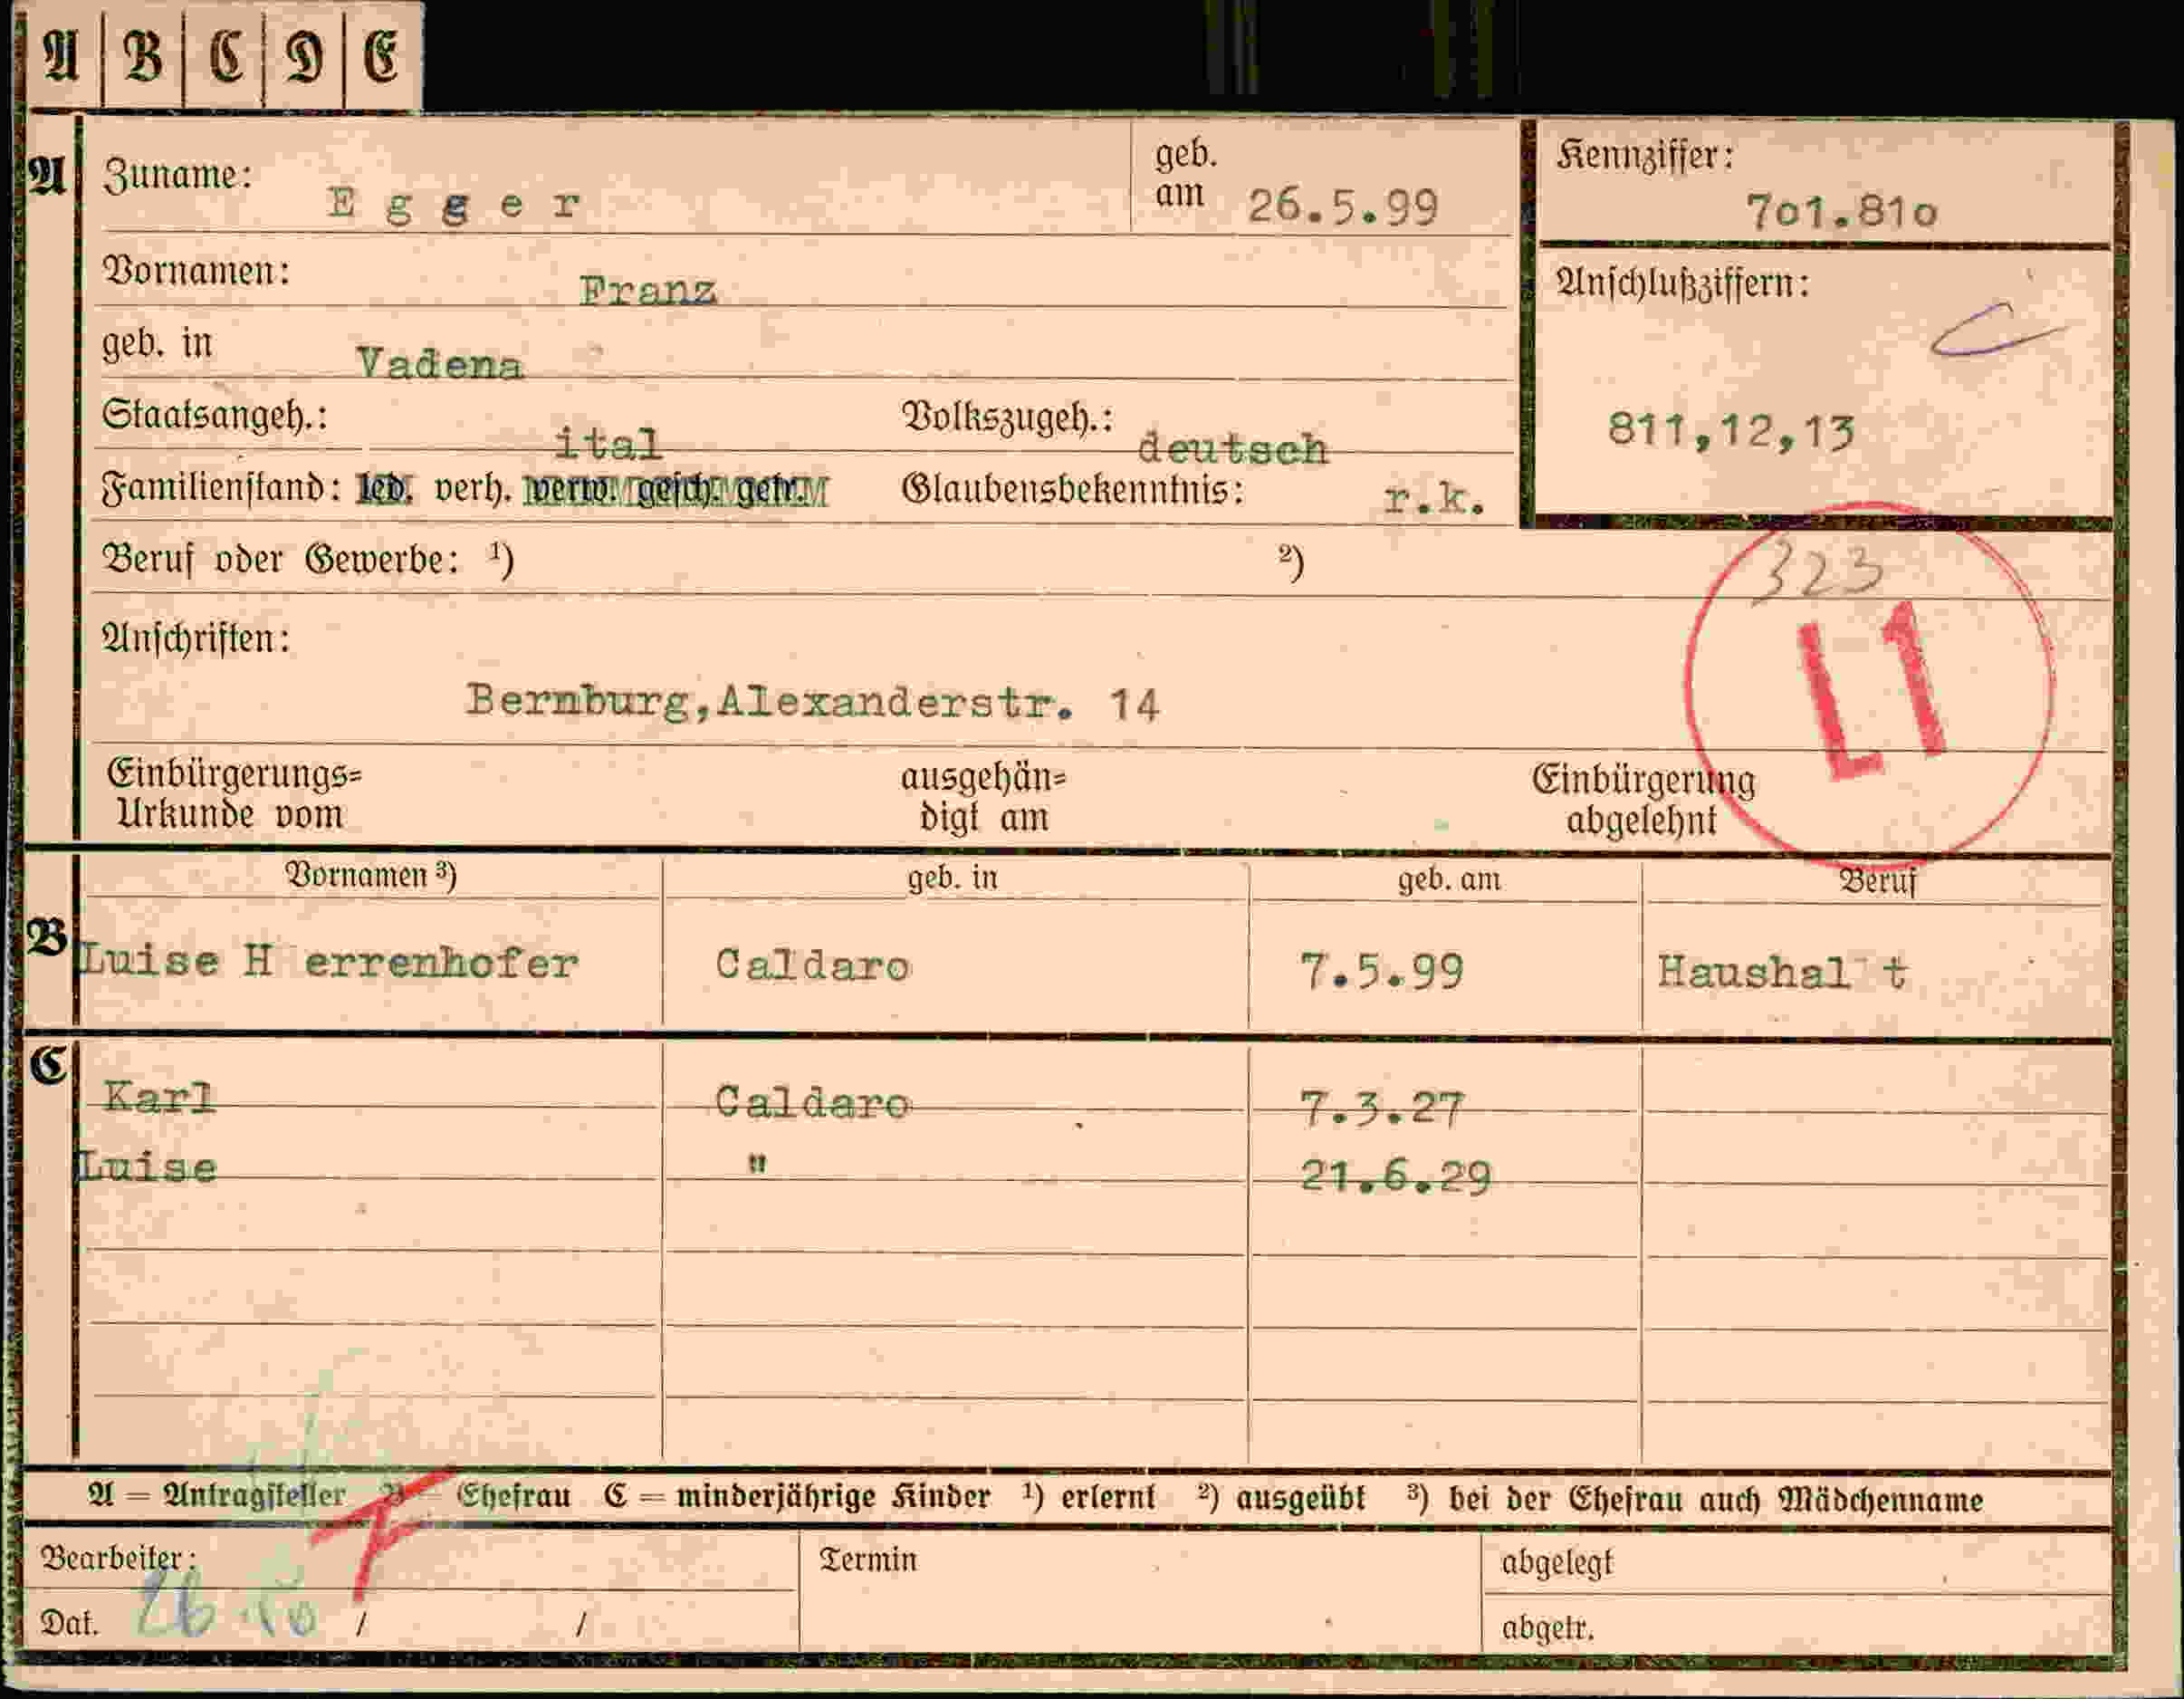 A B C D E
A Zuname: Egger geb. am 26.5.99 Kennziffer: 701.810
Vornamen: Franz Anschlußziffern:
geb. in Vadena
Staatsangeh.: ital Volkszugeh.: deutsch 811,12,13
Familienstand: led. verh. verw. gesch. getr. Glaubensbekenntnis: r.k.
Beruf oder Gewerbe: ¹) ²) 323
Anschriften: L1
Bernburg,Alexanderstr. 14
Einbürgerungs= ausgehän= Einbürgerung
Urkunde vom digt am abgelehnt
Vornamen ³) geb. in geb. am Beruf
B Luise H errenhofer Caldaro 7.5.99 Haushal t
C Karl Caldaro 7.3.27
Luise " 21.6.29
A = Antragsteller B = Ehefrau C = minderjährige Kinder ¹) erlernt ²) ausgeübt ³) bei der Ehefrau auch Mädchenname
Bearbeiter: Termin abgelegt
Dat. 26.10 / / abgetr.